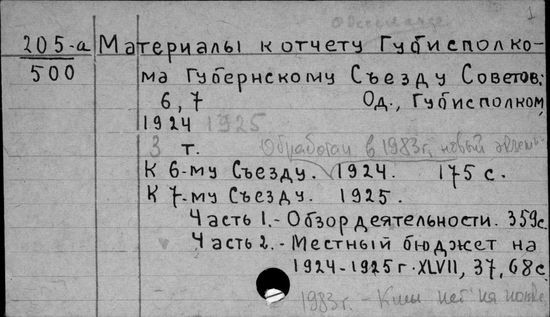 1
205-а Материалы к отчету Губисполко-
500
ма Губернскому Съезду Советов.
6, 7 Од., Губисполком,
1924 1925
3 т. Обработан в 1983г, новый
К 6-му Съезду. 1924. 175 с.
К 7-му Съезду. 1925.
Часть 1.- Обзор деятельности. 359с.
Часть 2.- Местный бюджет на
1924-1925 г. XLVII, 37, 68с.
1983г. - Книг нет на